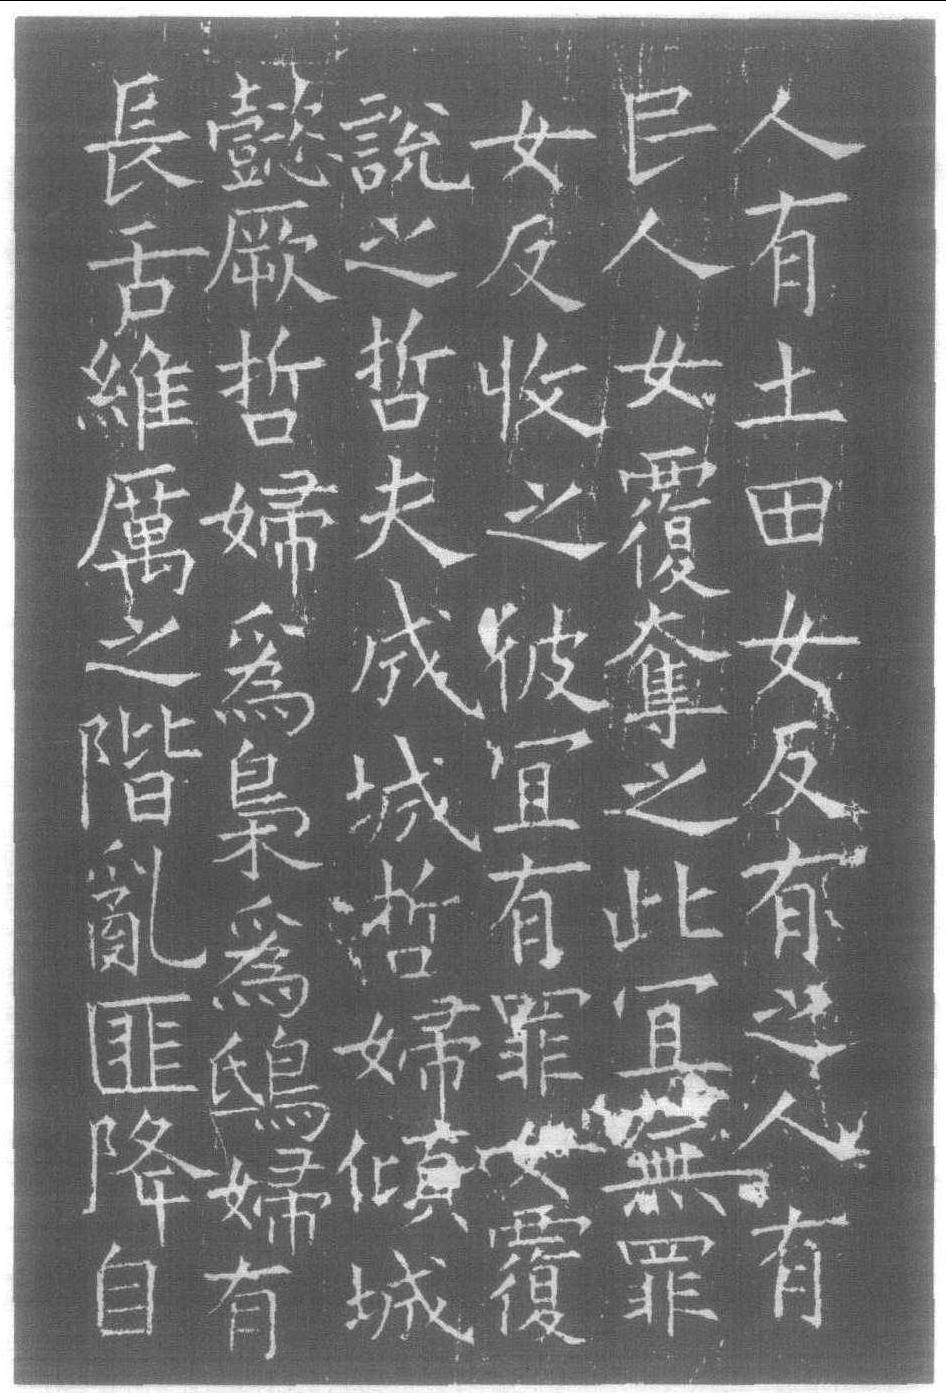 人有土田女反有之人有
民人女覆奪之此冝無罪
女反收之彼冝有罪女覆
說之哲夫成城哲婦傾城
懿厥哲婦爲梟爲鴟婦有
長舌維厲之階亂匪降自